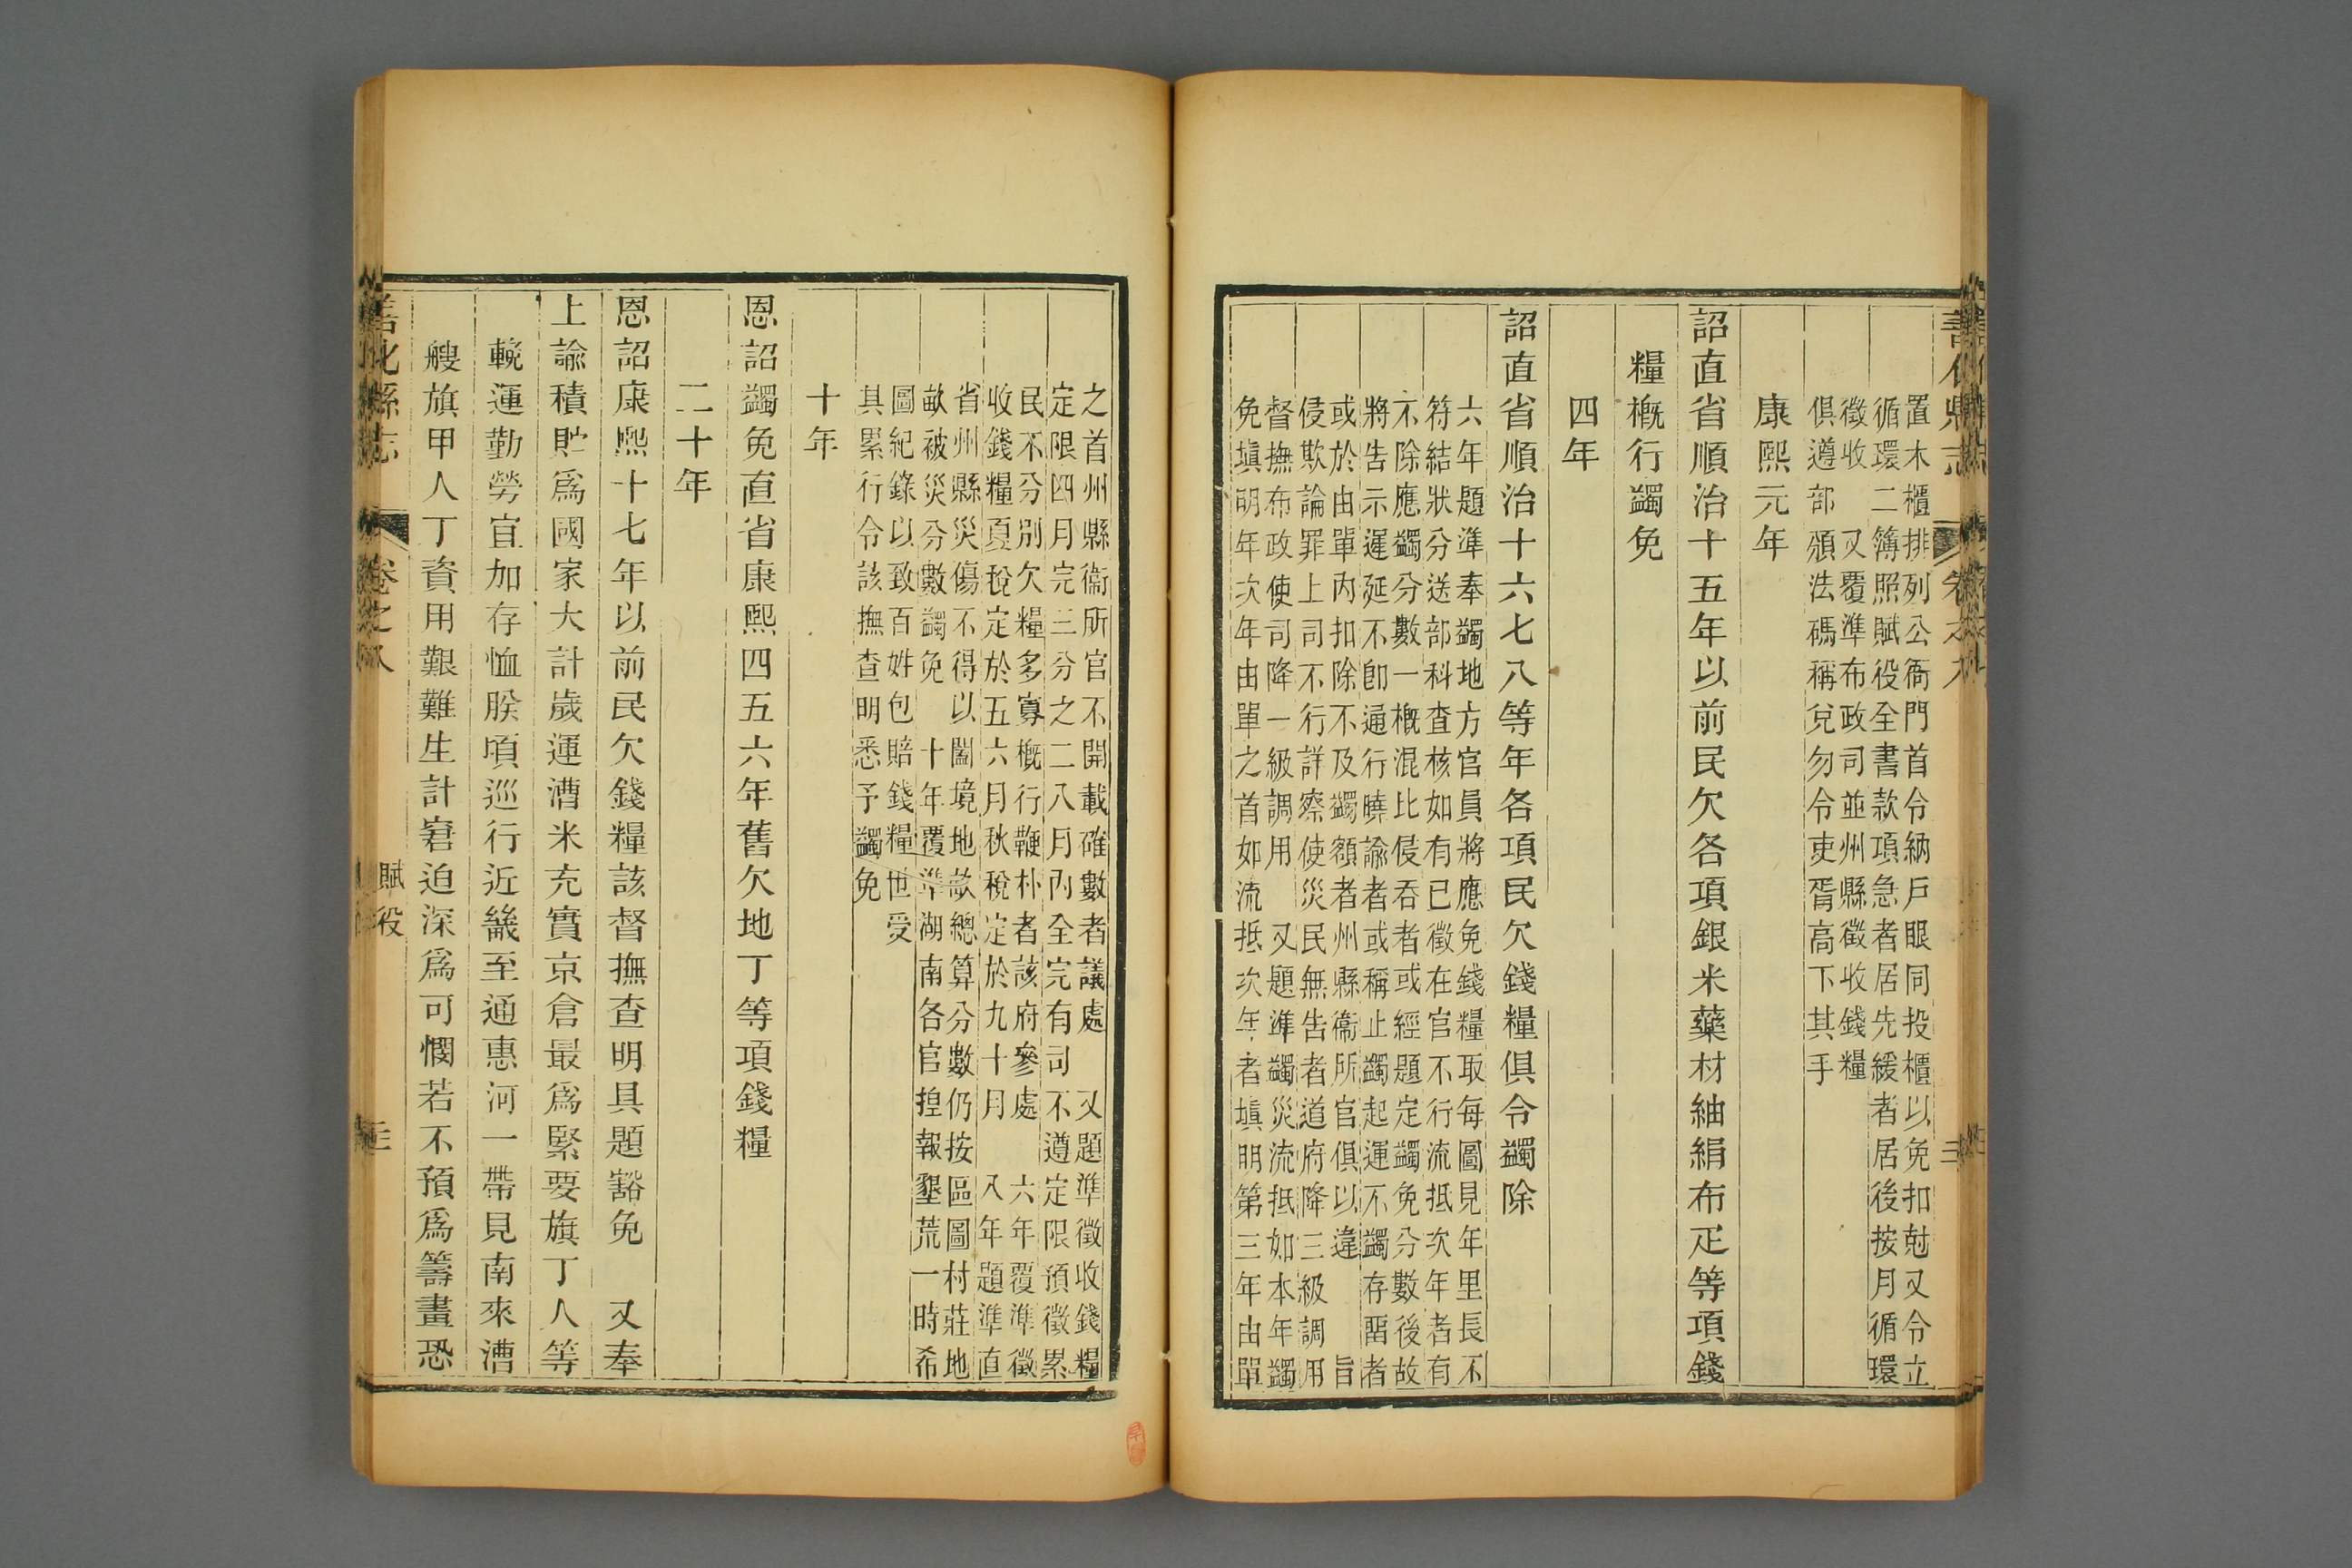 置木櫃排列公衙門首令納戶眼同投櫃以免扣尅又令立
循環二簿照賦役全書款項急者居先緩者居後按月循環
徵收　又覆準布政司並州縣徵收錢糧
俱遵部頒法碼稱兌勿令吏胥高下其手
康熙元年
詔直省順治十五年以前民欠各項銀米藥材紬絹布疋等項錢
糧概行蠲免
四年
詔直省順治十六七八等年各項民欠錢糧俱令蠲除
六年題準奉蠲地方官員將應免錢糧取每圖見年里長不
符結狀分送部科查核如有已徵在官不行流抵次年者有
不除應蠲分數一概混比侵吞者或經題定蠲免分數後故
將告示遲延不卽通行曉諭者或稱止蠲起運不蠲存留者
或於由單內扣除不及蠲額者州縣衞所官俱以違　旨
侵欺論罪上司不行詳察使災民無告者道府降三級調用
督撫布政使司降一級調用　又題準蠲災流抵如本年蠲
免塡明年次年由單之首如流抵次年者塡明第三年由單
之首州縣衞所官不開載確數者議處　又題準徵收錢糧
定限四月完三分之二八月內全完有司不遵定限預徵累
民不分別欠糧多寡概行鞭朴者該府參處　六年覆準徵
收錢糧夏稅定於五六月秋稅定於九十月　八年題準直
省州縣災傷不得以闔境地畝總算分數仍按區圖村莊地
畝被災分數蠲免　十年覆準湖南各官揑報墾荒一時希
圖紀錄以致百姓包賠錢糧世受
其累行令該撫查明悉予蠲免
十年
恩詔蠲免直省康熙四五六年舊欠地丁等項錢糧
二十年
恩詔康熙十七年以前民欠錢糧該督撫查明具題豁免　又奉
上諭積貯爲國家大計歲運漕米充實京倉最爲緊要旗丁人等
輓運勤勞宜加存恤朕頃巡行近畿至通惠河一帶見南來漕
艘旗甲人丁資用艱難生計窘迫深爲可憫若不預爲籌畫恐
善化縣志
卷之八
賦役